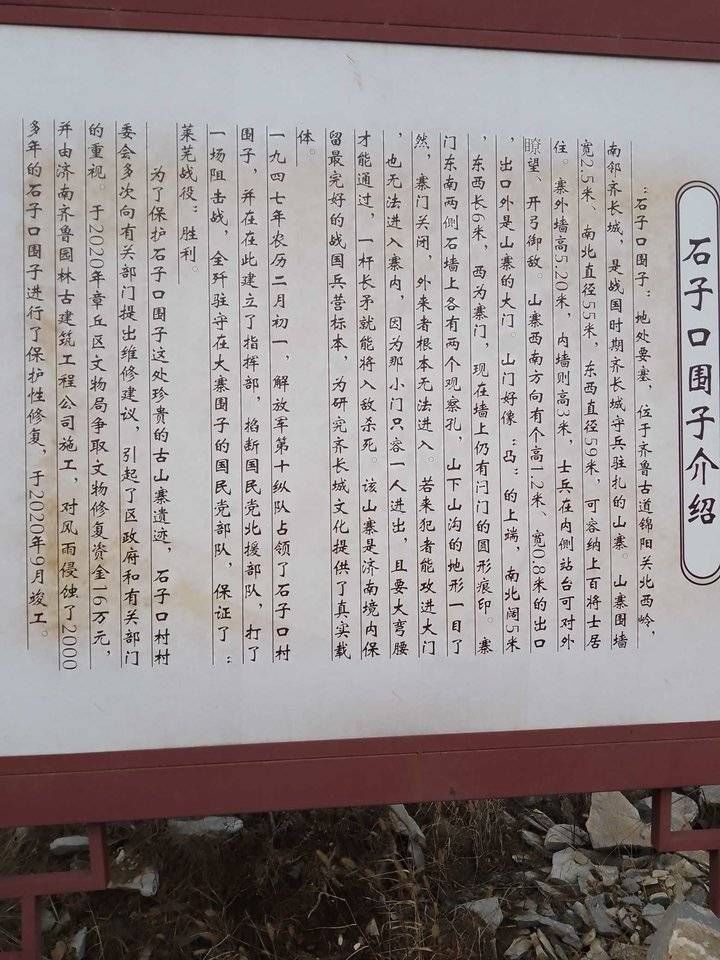 石子口围子介绍
:石子口围子":地处要塞,位于齐鲁古道锦阳关北西岭,
南邻齐长城,是战国时期齐长城守兵驻扎的山寨。山寨围墙
宽2.5米、南北直径55米,东西直径59米,可容纳上百将士居
住。寨外墙高5.20米,内墙则高3米,士兵在内侧站台可对外
瞭望、开弓御敌。山寨西南方向有个高1.2米、宽0.8米的出口
,出口外是山寨的大门。山门好像“凸”的上端,南北阔5米
,东西长6米,西为寨门,现在墙上仍有闩门的圆形痕印。寨
门东南两侧石墙上各有两个观察孔,山下山沟的地形一目了
然,寨门关闭,外来者根本无法进入。若来犯者能攻进大门
,也无法进入寨内,因为那小门只容一人进出,且要大弯腰
才能通过,一杆长矛就能将入敌杀死。该山寨是济南境内保
留最完好的战国兵营标本,为研究齐长城文化提供了真实载
体。
一九四七年农历二月初一,解放军第十纵队占领了石子口村
围子,并在在此建立了指挥部,掐断国民党北援部队,打了
一场阻击战,全歼驻守在大寨围子的国民党部队,保证了:
莱芜战役:胜利。
为了保护石子口围子这处珍贵的古山寨遗迹,石子口村村
委会多次向有关部门提出维修建议,引起了区政府和有关部门
的重视。于2020年章丘区文物局争取文物修复资金16万元,
并由济南齐鲁园林古建筑工程公司施工,对风雨侵蚀了2000
多年的石子口围子进行了保护性修复,于2020年9月竣工。